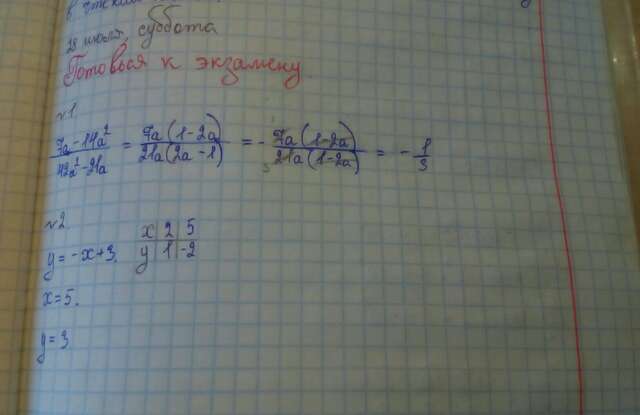 28 июля, суббота
Готовься к экзамену
№1.
7a - 14a² / 42a² - 21a = 7a(1 - 2a) / 21a(2a - 1) = - 7a(1 - 2a) / 21a(1 - 2a) = - 1/3
№2.
y = -x + 3. x | 2 | 5
y | 1 | -2
x = 5.
y = 3